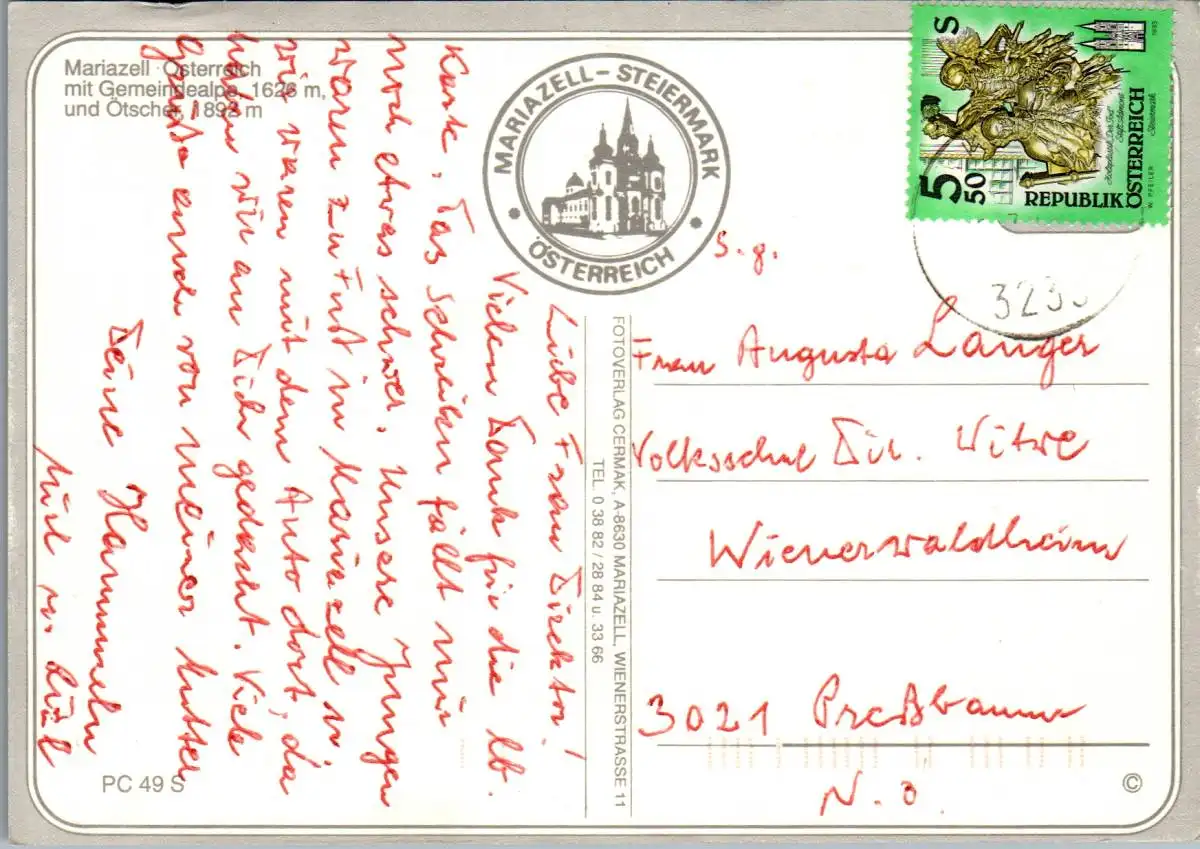 Mariazell Österreich
mit Gemeindealpe, 1626 m,
und Ötscher, 1892 m
MARIAZELL – STEIERMARK
ÖSTERREICH
Liebe Frau Direktor!
Vielen Dank für die lb.
Karte. Das Schreiben fällt mir
noch etwas schwer. Unsere Jungen
waren zu Fuß in Mariazell u.
wir waren mit dem Auto dort, da
haben wir an Dich gedacht. Viele
Grüße auch von meiner Mutter
Deine Hammerln
PC 49 S
FOTOVERLAG CERMAK, A-8630 MARIAZELL, WIENERSTRASSE 11
TEL. 0 38 82 / 28 84 u. 33 66
5 50 S
REPUBLIK
ÖSTERREICH
W. PFEILER
1993
323
S. g.
Frau Augusta Langer
Volksschul Dir. Witwe
Wienerwaldheim
3021 Preßbaum
N.Ö.
©